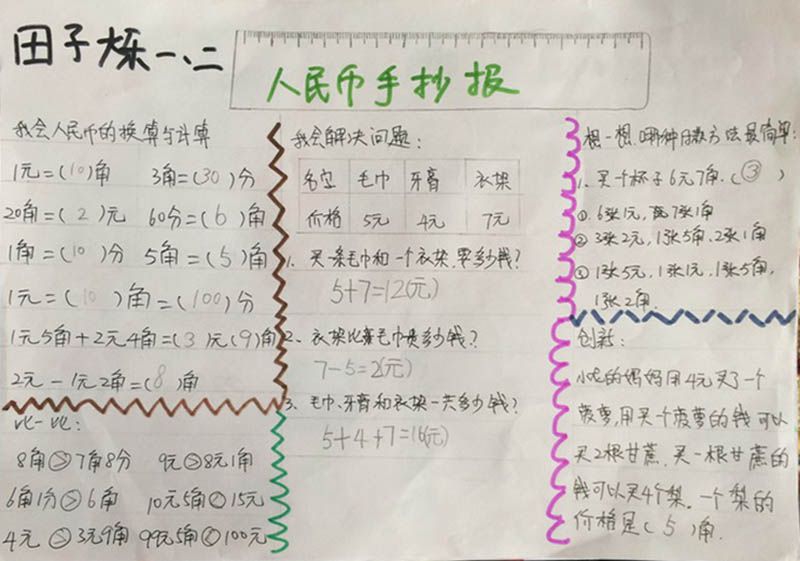 田子烁 一、二
人民币手抄报
我会人民币的换算与计算
1元=(10)角 3角=(30)分
20角=(2)元 60分=(6)角
1角=(10)分 5角=(5)角
1元=(10)角=(100)分
1元5角+2元4角=(3)元(9)角
2元-1元2角=(8)角
比一比:
8角>7角8分 9元>8元1角
6角1分>6角 10元5角<15元
4元>3元9角 99元5角<100元
我会解决问题:
毛巾 牙膏 衣架
价格 5元 4元 7元
1、买一条毛巾和一个衣架,要多少钱?
5+7=12(元)
2、衣架比毛巾贵多少钱?
7-5=2(元)
3、毛巾、牙膏和衣架一共多少钱?
5+4+7=16(元)
想一想,哪种付款方法最简单:
1、买一个杯子6元7角.(③)
①.6张1元,7张1角
②3张2元,1张5角,2张1角
1张5元,1张1元,1张5角,
1张2角.
创新:
的妈妈用4元买了一个
菠萝,用买一个菠萝的钱可以
买2根甘蔗.买一根甘蔗的
钱可以买4个梨.一个梨的
价格是(5)角.